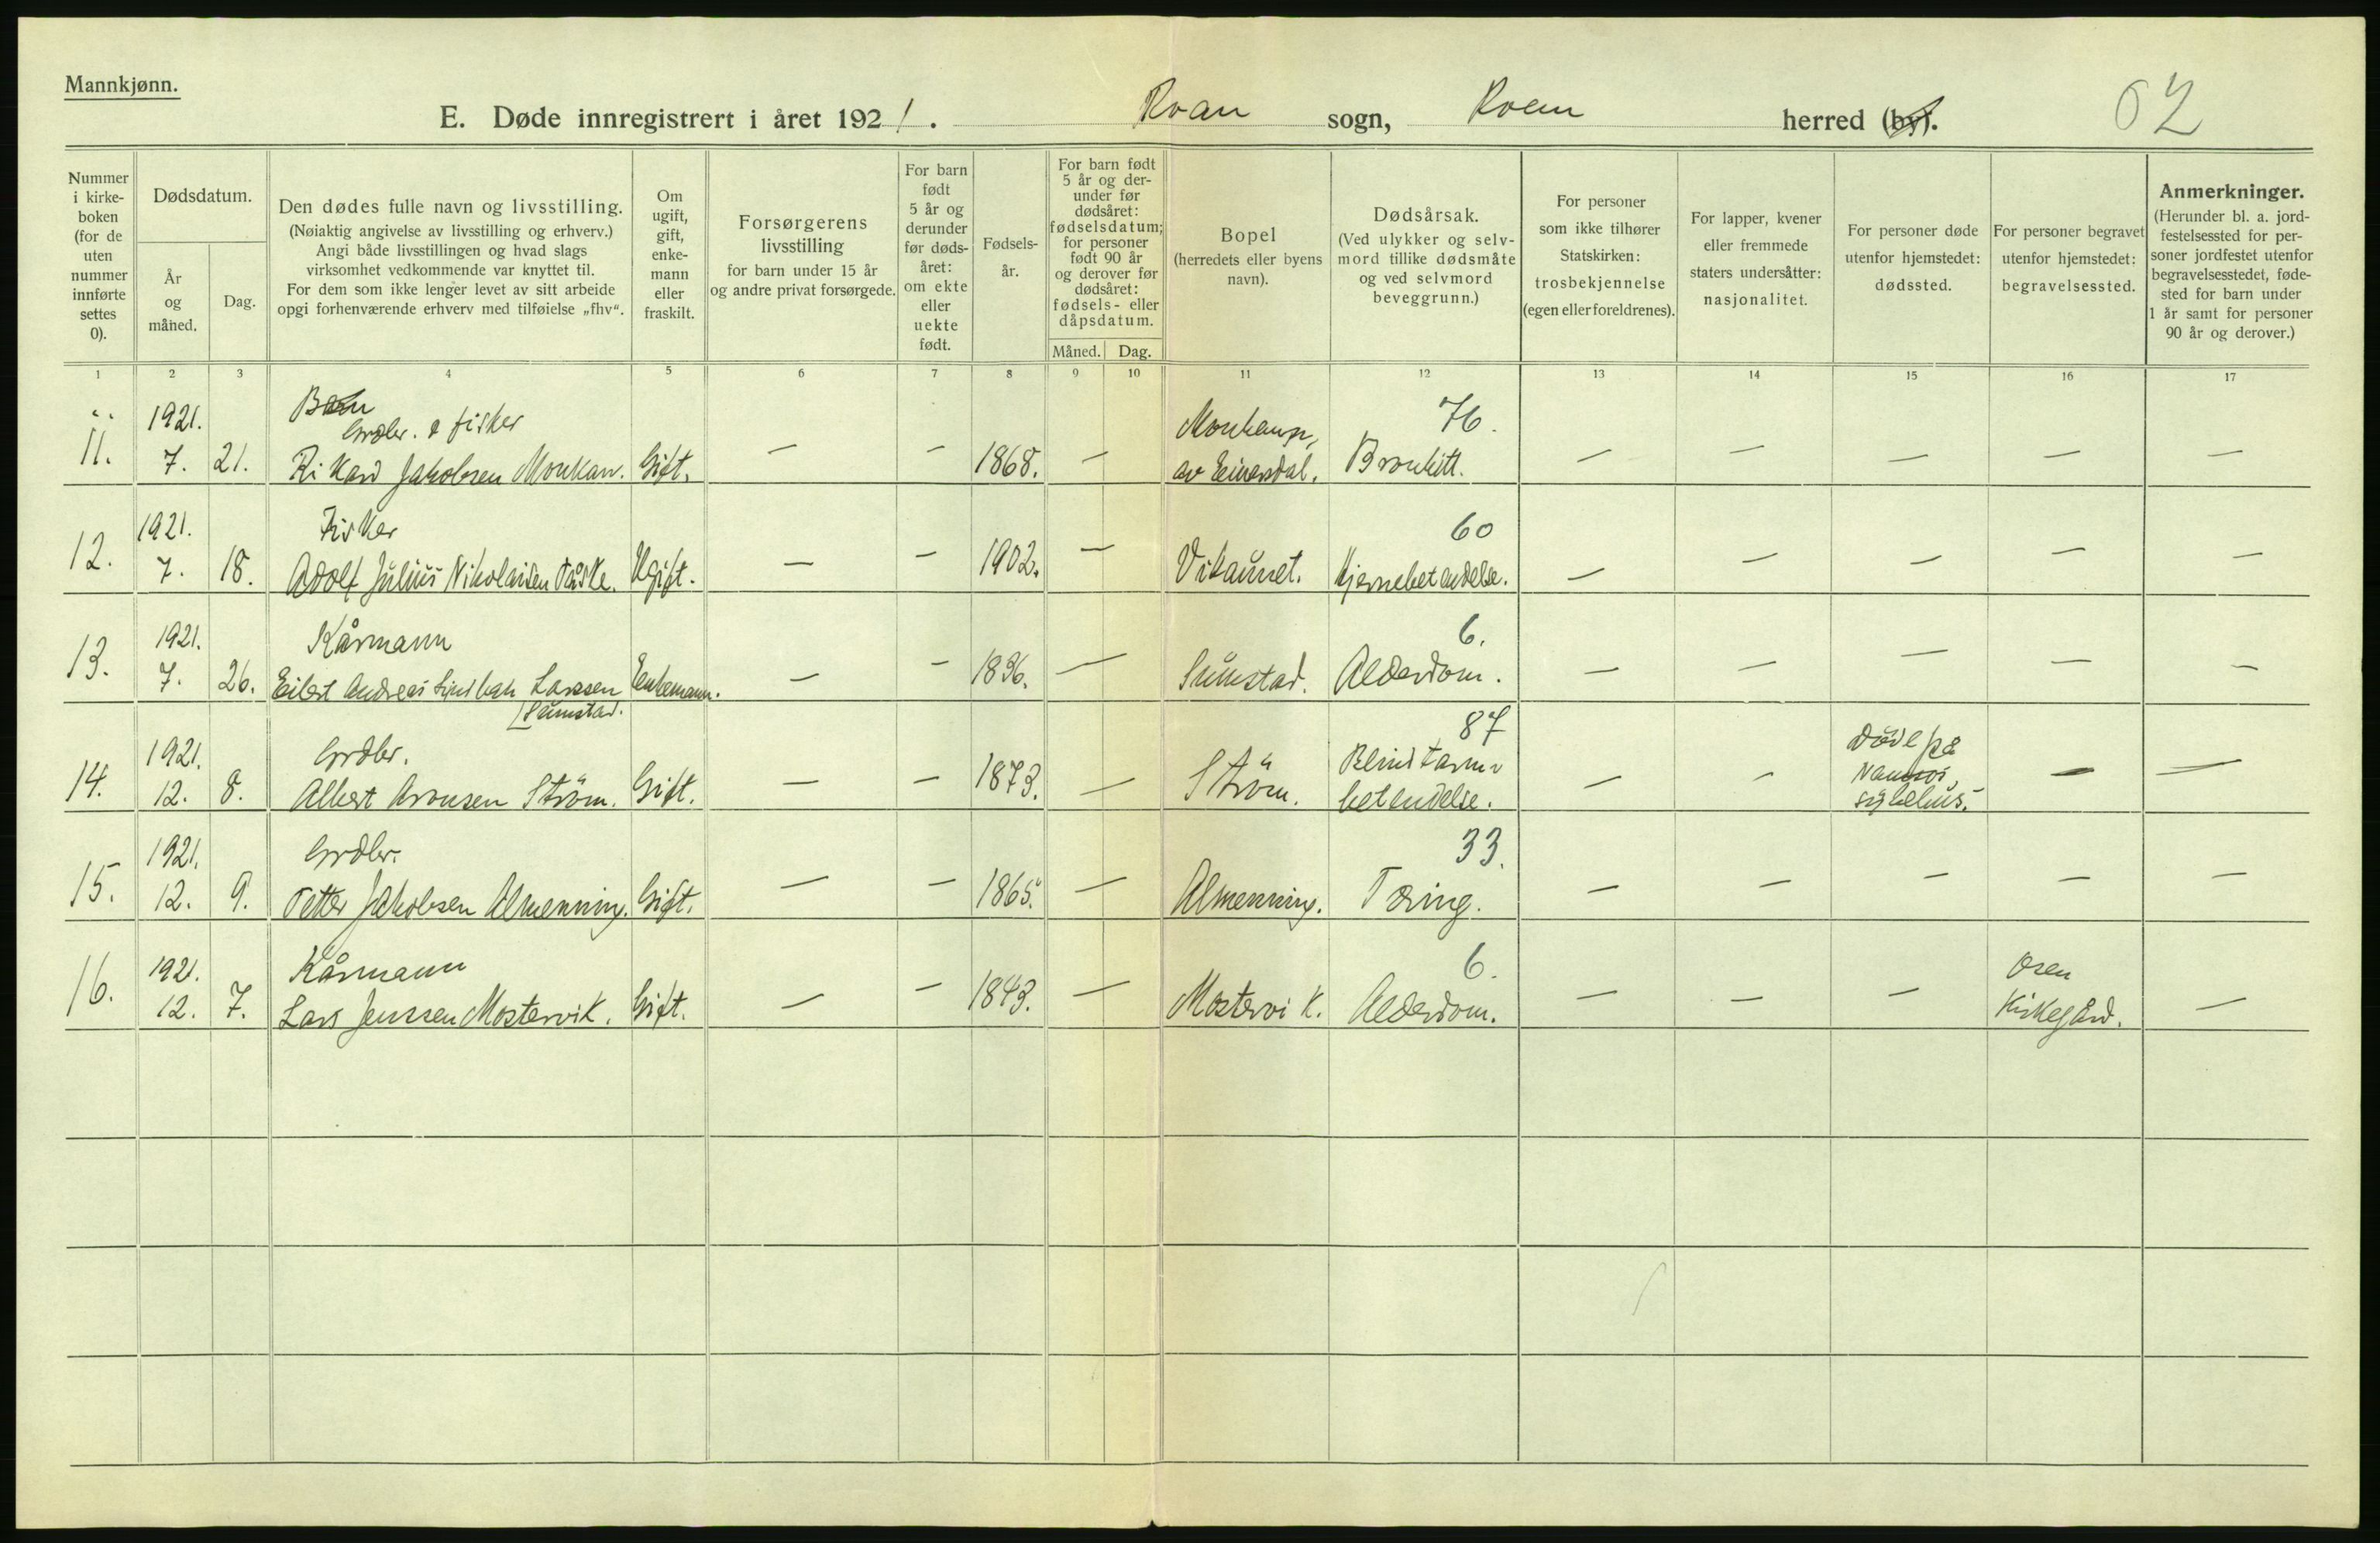 Mannkjønn.
E. Døde innregistrert i året 1921. Roan sogn, Roan herred (by). 62
Nummer i kirke-boken (for de uten nummer innførte settes 0).
Dødsdatum.
År og måned.
Dag.
Den dødes fulle navn og livsstilling.
(Nøiaktig angivelse av livsstilling og erhverv.)
Angi både livsstillingen og hvad slags
virksomhet vedkommende var knyttet til.
For dem som ikke lenger levet av sitt arbeide
opgi forhenværende erhverv med tilføielse „fhv“.
Om ugift, gift, enke-mann eller fraskilt.
Forsørgerens
livsstilling
for barn under 15 år
og andre privat forsørgede.
For barn født 5 år og derunder før døds-året: om ekte eller uekte født.
Fødsels-år.
For barn født 5 år og der-under før dødsåret: fødselsdatum; for personer født 90 år og derover før dødsåret: fødsels- eller dåpsdatum.
Måned. Dag.
Bopel
(herredets eller byens
navn).
Dødsårsak.
(Ved ulykker og selv-
mord tillike dødsmåte
og ved selvmord
beveggrunn.)
For personer
som ikke tilhører
Statskirken:
trosbekjennelse
(egen eller foreldrenes).
For lapper, kvener
eller fremmede
staters undersåtter:
nasjonalitet.
For personer døde
utenfor hjemstedet:
dødssted.
For personer begravet
utenfor hjemstedet:
begravelsessted.
Anmerkninger.
(Herunder bl. a. jord-
festelsessted for per-
soner jordfestet utenfor
begravelsesstedet, føde-
sted for barn under
1 år samt for personer
90 år og derover.)
1 2 3 4 5 6 7 8 9 10 11 12 13 14 15 16 17
1921. Barn 76.
Grdbr. & fisker
11. 7. 21. Rikard Jakobsen Monkan. Gift. — — 1868. — av Einarsdal. Bronkitt. — — — — —
1921. Fisker 60
12. 7. 18. Adolf Julius Nikolaisen Påske. Ugift. — — 1902. — Vikaunet. Hjernebetendelse. — — — — —
1921. Kårmann 6.
13. 7. 26. Eilert Andreas Larssen Enkemann. — — 1836. — Sumstad. Alderdom. — — — — —
Sumstad.
1921. Grdbr. 87 Døde på
14. 12. 8. Albert Aronsen Ström. Gift. — — 1873. — Ström. Blindtarm-betendelse. — — Namsos sykehus. — —
1921. Grdbr. 33.
15. 12. 9. Petter Jakobsen Almenning. Gift. — — 1865. — Almenning. Tæring. — — — — —
1921. Kårmann 6. Osen
16. 12. 7. Lars Jenssen Mostervik. Gift. — — 1843. — Mostervik. Alderdom. — — — Kirkegård. —